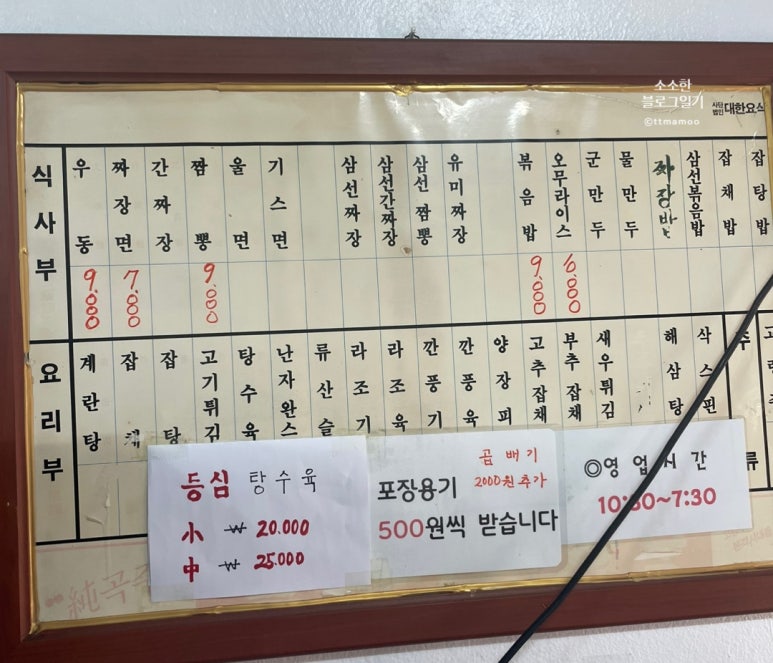 소소한
블로그일기
©ttmamoo
사단법인 대한요식
식사부
우동 9.000
짜장면 7.000
간짜장
짬뽕 9.000
울면
기스면
삼선짜장
삼선간짜장
삼선짬뽕
유미짜장
볶음밥 9.000
오무라이스 6.000
군만두
물만두
짜장밥
삼선볶음밥
잡채밥
잡탕밥
요리부
계란탕
잡채
잡탕
고기튀김
탕수육
난자완스
류산슬
라조기
라조육
깐풍기
깐풍육
양장피
고추잡채
부추잡채
새우튀김
해삼탕
삭스핀
주류
등심 탕수육
小 ₩ 20.000
中 ₩ 25.000
곱배기
2000원 추가
포장용기
500원씩 받습니다
◎영업시간
10:30~7:30